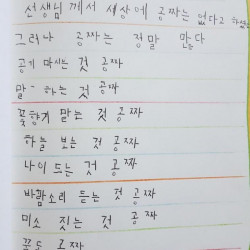 선생님께서 세상에 공짜는 없다고 하셨
그러나 공짜는 정말 많다
공기 마시는 것 공짜
말 하는 것 공짜
꽃향기 맡는 것 공짜
하늘 보는 것 공짜
나이 드는 것 공짜
바람소리 듣는 것 공짜
미소 짓는 것 공짜
꿈도 공짜